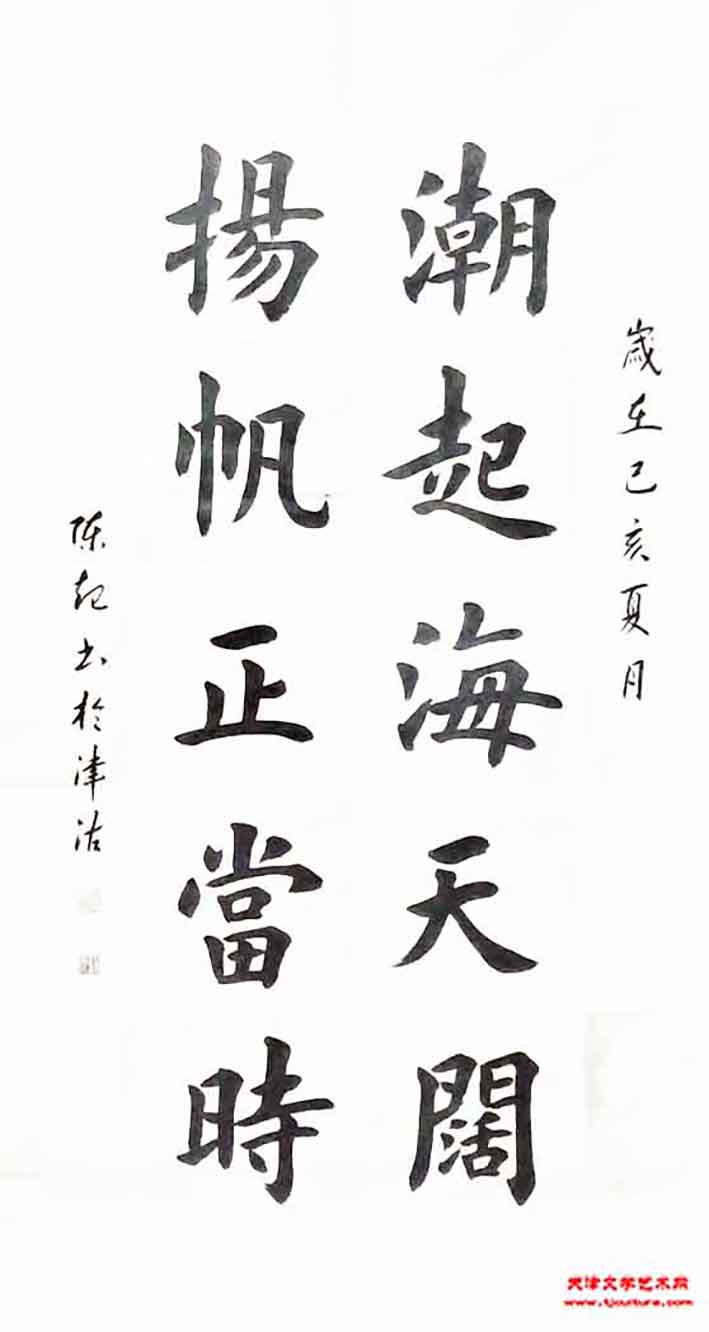 歲在己亥夏月
潮起海天闊
揚帆正當時
陈起书於津沽
天津文学艺术网